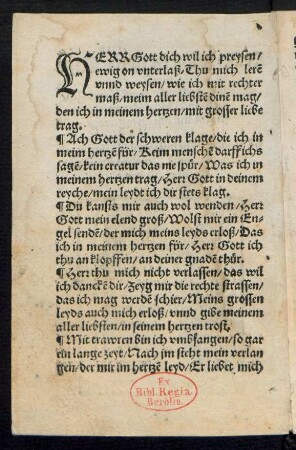 HERR Gott dich wil ich preysen/
ewig on vnterlaß/ Thu mich lerẽ
vnnd weysen/ wie ich mit rechter
maß/ meim aller liebstẽ dinẽ mag/
den ich in meinem hertzen/ mit grosser liebe
trag.
¶ Ach Gott der schweren klage/ die ich in
meim hertzẽ für/ Keim menschẽ darff ichs
sagẽ/ kein creatur das nie spür/ Was ich in
meinem hertzen trag/ Herr Gott in deinem
reyche/ mein leydt ich dir stets klag.
¶ Du kansts mir auch wol wenden/ Herr
Gott mein elend groß/ Wolst mir ein En-
gel sendẽ/ der mich meins leyds erloß/ Das
ich in meinem hertzen für/ Herr Gott ich
thu an klopffen/ an deiner gnadẽ thür.
¶ Herr thu mich nicht verlassen/ das wil
ich danckẽ dir/ Zeyg mir die rechte strassen/
das ich mag werdẽ schier/ Meins grossen
leyds auch mich erloß/ vnnd gibe meinem
aller liebsten/ in seinem hertzen trost.
¶ Mit trawren bin ich vmbfangen/ so gar
ein lange zeyt/ Nach jm steht mein verlan
gen/ der mir im hertzẽ leyd/ Er liebet mich
Ex
Bibl. Regia
Berolin.